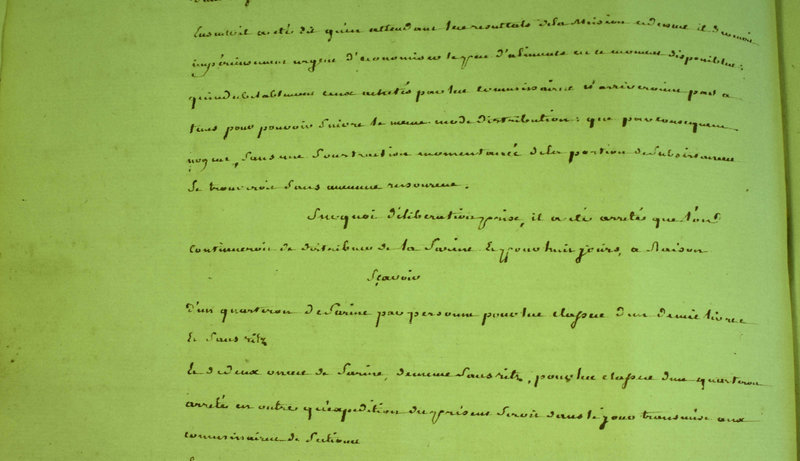 Ensuite il a été dit qu'en attendant les resultats de la Mission cidessus il devenoit
impérieusement urgent d'économiser le peu d'aliments en ce moment disponibles;
qu'indubitablement ceux achetés par les commissaires n'arriveroient pas a
tems pour pouvoir suivre le meme mode distribution; que par consequent
sans une soustraction momentanée de la portion de subsistances
se trouveroit sans aucune ressource.
Surquoi déliberation prise, il a été arrêté que l'on
continueroit de distribuer de la farine Et pour huit jours, a Raison
Sçavoir
d'un quarteron de farine par personne pour les classes d'un demie livre
Et sans ritz
Et de deux onces de farine, demême sans ritz, pour les classes d'un quarteron
arrêté en outre qu'expedition du present seroit dans le jour transmise aux
commissaires de Sections